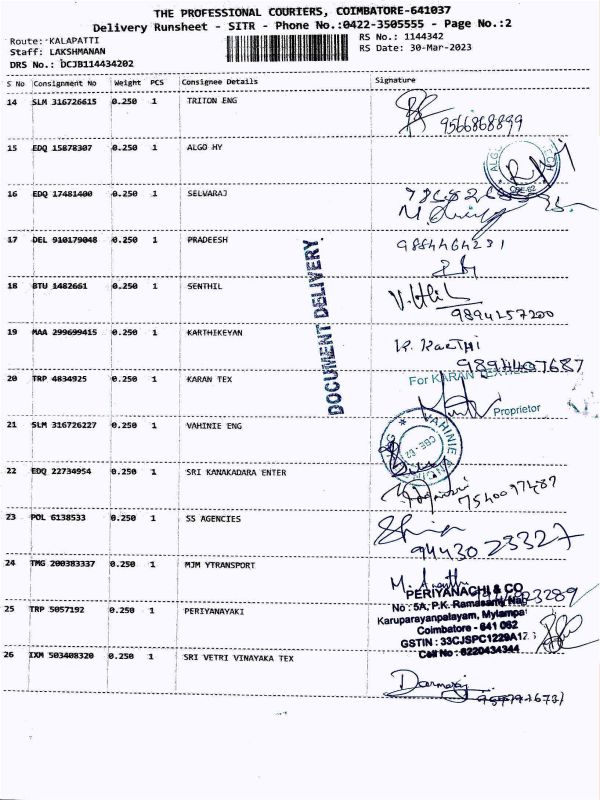 THE PROFESSIONAL COURIERS, COIMBATORE-641037
Delivery Runsheet - SITR - Phone No.:0422-3505555 - Page No.:2
Route: KALAPATTI
RS No.: 1144342
Staff: LAKSHMANAN
RS Date: 30-Mar-2023
DRS No.: DCJB114434202
S No Consignment No Weight PCS Consignee Details Signature
14 SLM 316726615 0.250 1 TRITON ENG
9566868899
15 EDQ 15878307 0.250 1 ALGO HY
ALGO
CBE-62
16 EDQ 17481400 0.250 1 SELVARAJ
17 DEL 910179048 0.250 1 PRADEESH
9884464231
18 BTU 1482661 0.250 1 SENTHIL
9894257200
19 MAA 299699415 0.250 1 KARTHIKEYAN
K. KARTHI
9894407687
DOCUMENT DELIVERY
20 TRP 4834925 0.250 1 KARAN TEX
For KARAN TEX
Proprietor
21 SLM 316726227 0.250 1 VAHINIE ENG
VAHINIE
CBE - 62
22 EDQ 22734954 0.250 1 SRI KANAKADARA ENTER
7540097487
23 POL 6138533 0.250 1 SS AGENCIES
94430 23327
24 TMG 200383337 0.250 1 MJM YTRANSPORT
25 TRP 5057192 0.250 1 PERIYANAYAKI
PERIYANACHI & CO
No : 5A, P.K. Ramasamy Nagar
Karuparayanpalayam, Mylampa
Coimbatore - 641 062
GSTIN : 33CJSPC1229A1Z
Cell No : 6220434344
26 IXM 503408320 0.250 1 SRI VETRI VINAYAKA TEX
Darmaraj